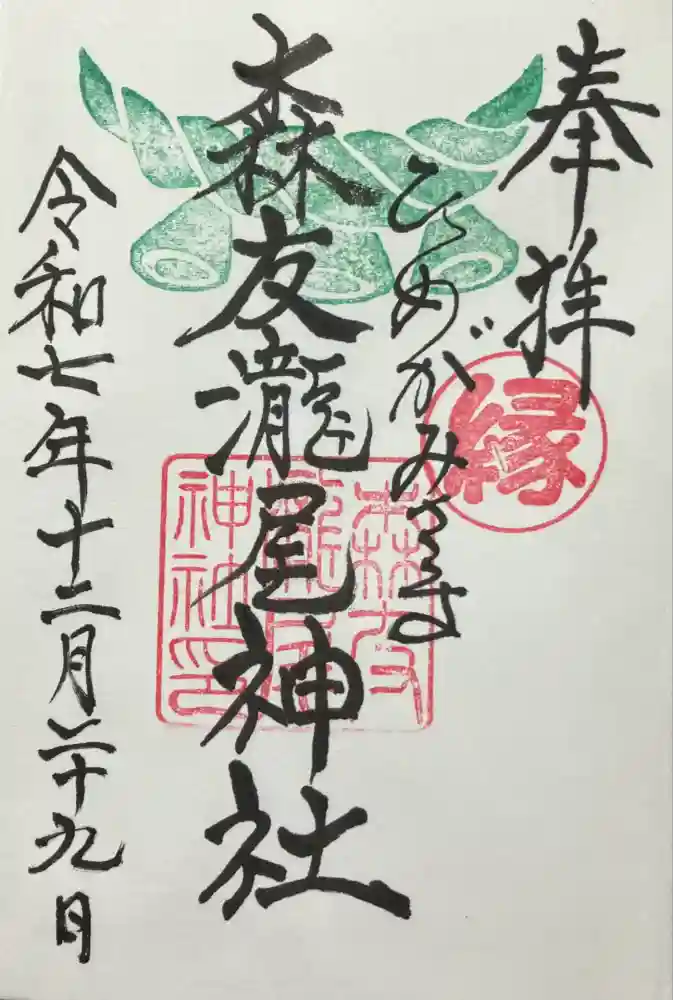 奉拝
縁
ひめがみさま
森友瀧尾神社
森友
瀧尾
神社印
令和七年十二月二十九日